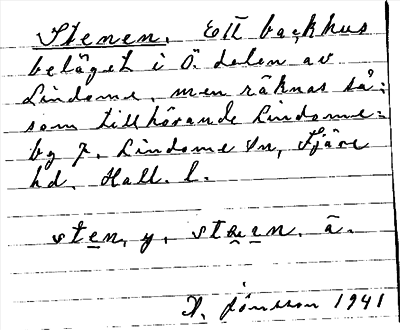 Stenen. Ett backhus
beläget i Ö. delen av
Lindome, men räknas så-
som tillhörande Lindome-
by 7. Lindome sn, Fjäre
hd, Hall. l.
sten, y, stæen, ä.
Jönsson 1941